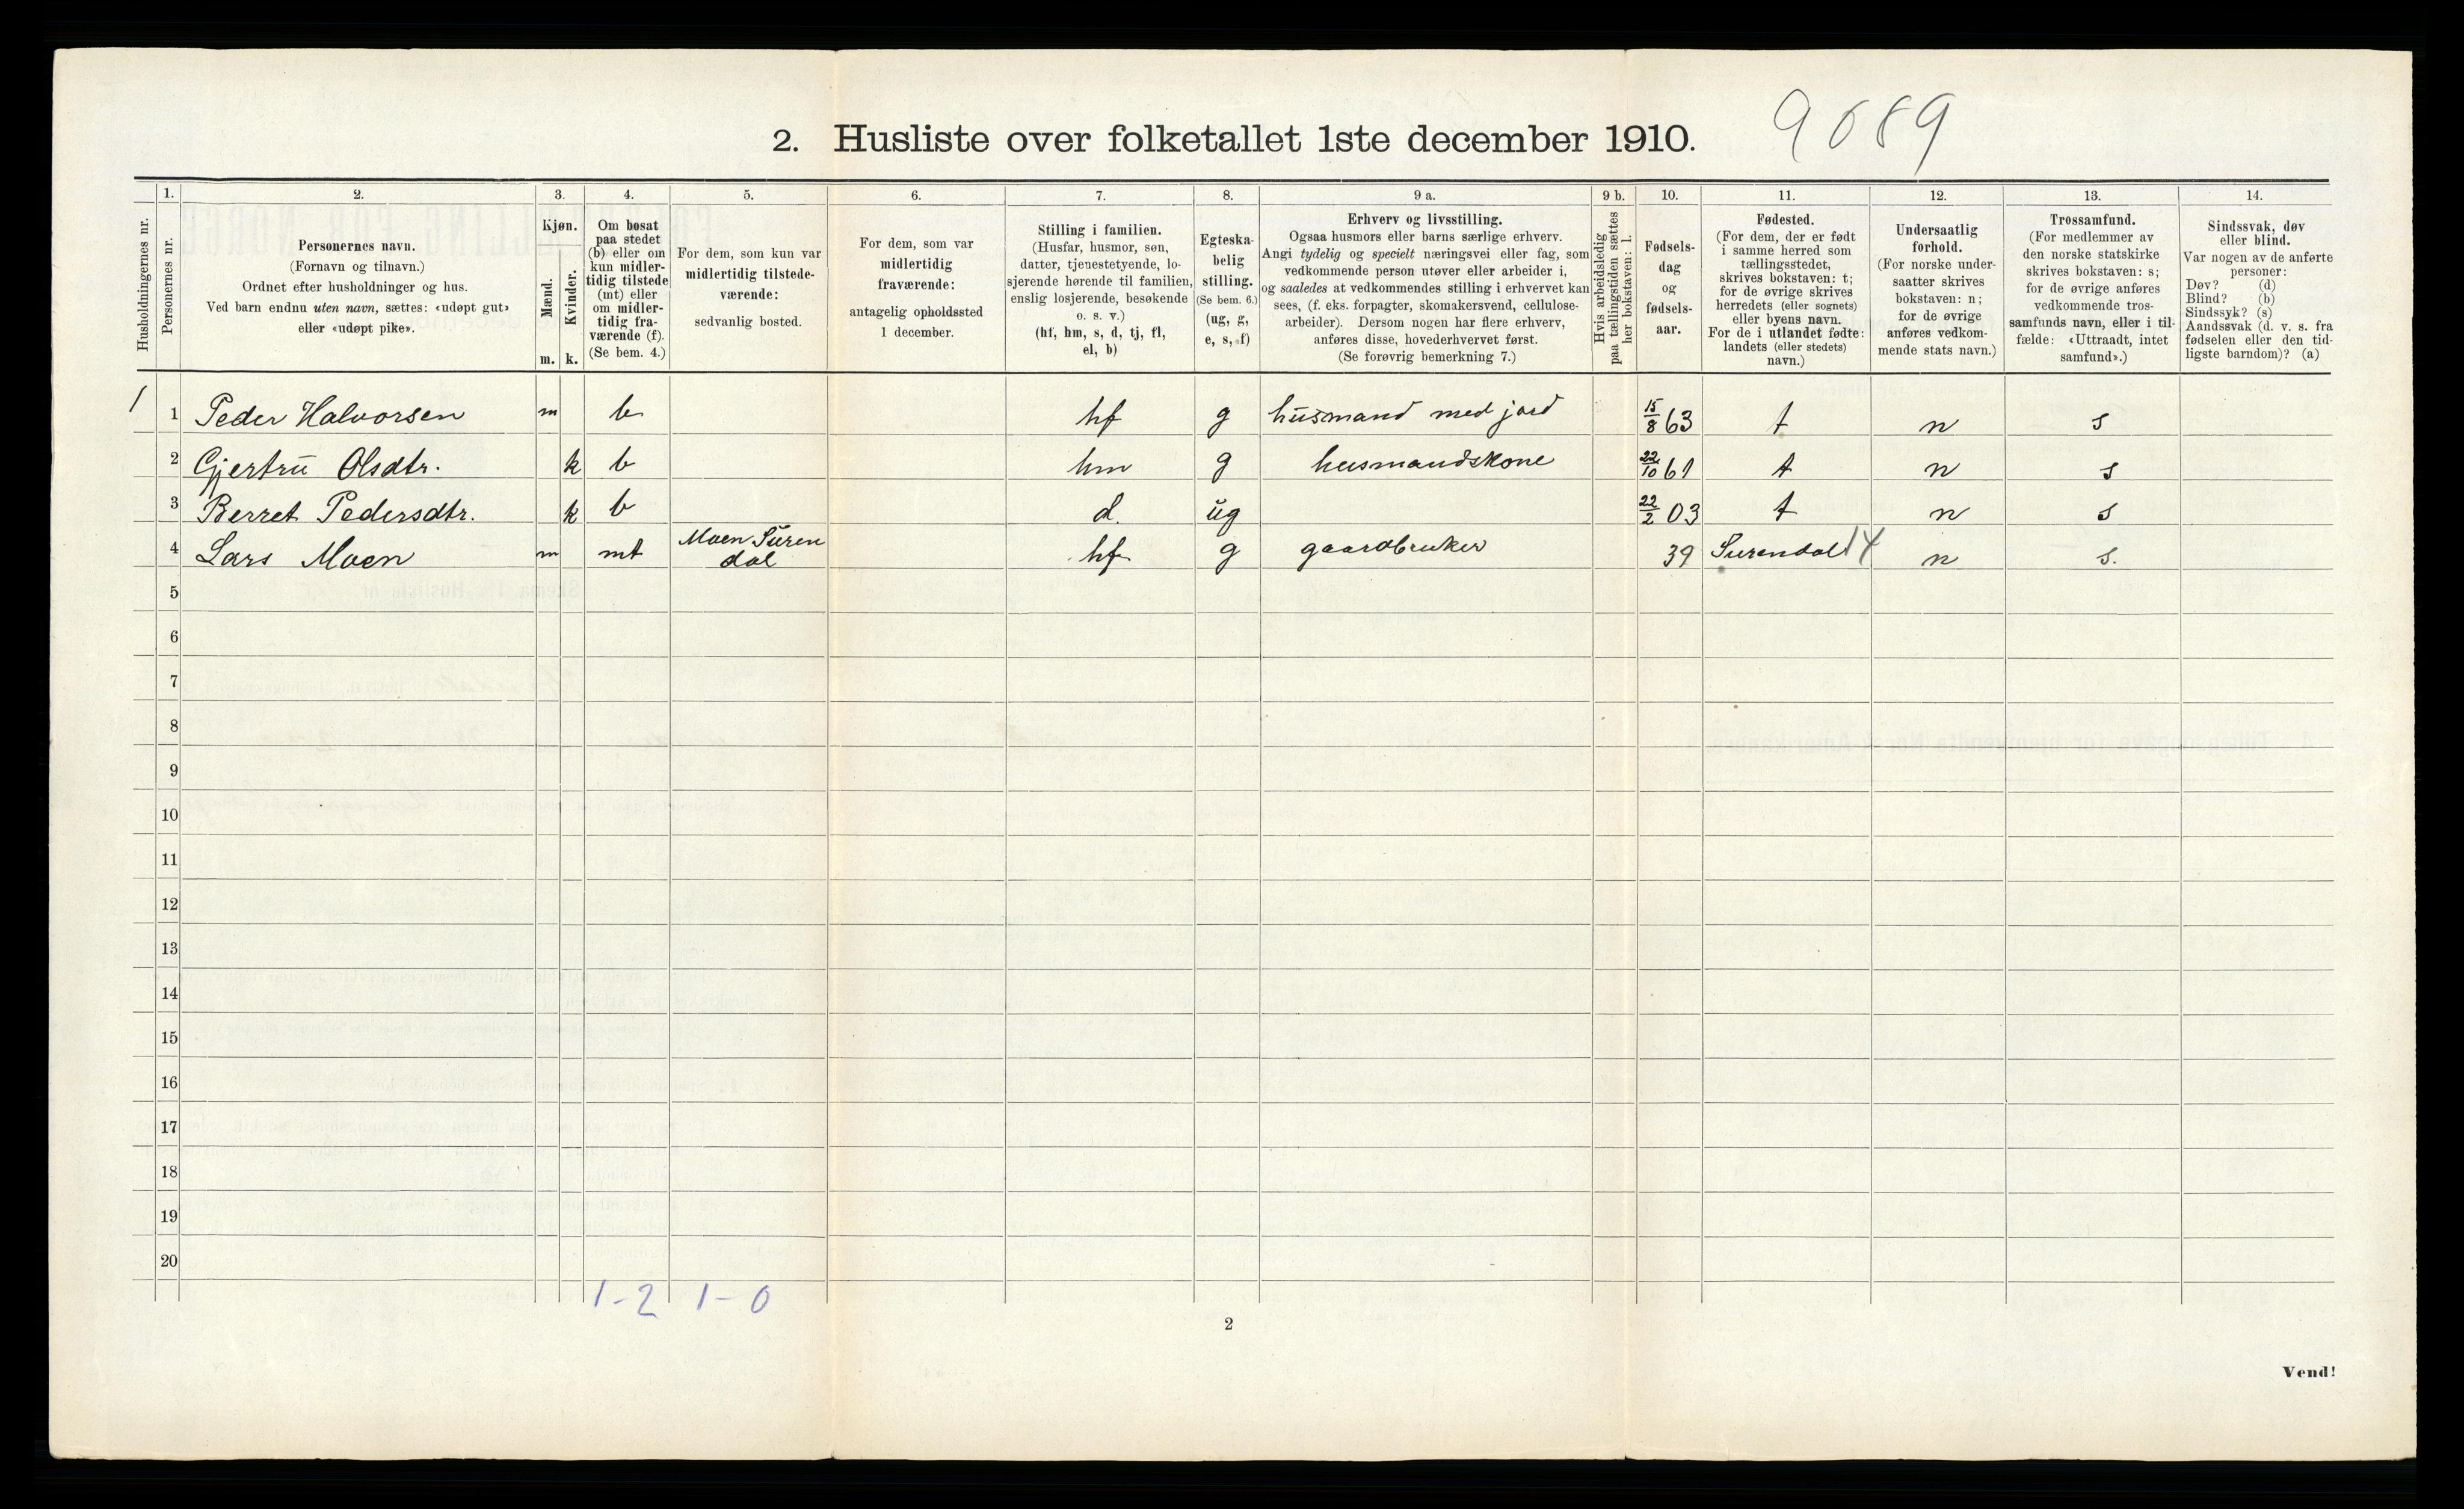 2. Husliste over folketallet 1ste december 1910.
9689
Husholdningernes nr.
1.
Personernes nr.
2.
Personernes navn.
(Fornavn og tilnavn.)
Ordnet efter husholdninger og hus.
Ved barn endnu uten navn, sættes: «udøpt gut»
eller «udøpt pike».
3.
Kjøn.
Mænd.
Kvinder.
m. k.
4.
Om bosat
paa stedet
(b) eller om
kun midler-
tidig tilstede
(mt) eller
om midler-
tidig fra-
værende (f).
(Se bem. 4.)
5.
For dem, som kun var
midlertidig tilstede-
værende:
sedvanlig bosted.
6.
For dem, som var
midlertidig
fraværende:
antagelig opholdssted
1 december.
7.
Stilling i familien.
(Husfar, husmor, søn,
datter, tjenestetyende, lo-
sjerende hørende til familien,
enslig losjerende, besøkende
o. s. v.)
(hf, hm, s, d, tj, fl,
el, b)
8.
Egteska-
belig
stilling.
(Se bem. 6.)
(ug, g,
e, s, f)
9 a.
Erhverv og livsstilling.
Ogsaa husmors eller barns særlige erhverv.
Angi tydelig og specielt næringsvei eller fag, som
vedkommende person utøver eller arbeider i,
og saaledes at vedkommendes stilling i erhvervet kan
sees, (f. eks. forpagter, skomakersvend, cellulose-
arbeider). Dersom nogen har flere erhverv,
anføres disse, hovederhvervet først.
(Se forøvrig bemerkning 7.)
9 b.
Hvis arbeidsledig
paa tællingstiden sættes
her bokstaven: l.
10.
Fødsels-
dag
og
fødsels-
aar.
11.
Fødested.
(For dem, der er født
i samme herred som
tællingsstedet,
skrives bokstaven: t;
for de øvrige skrives
herredets (eller sognets)
eller byens navn.
For de i utlandet fødte:
landets (eller stedets)
navn.)
12.
Undersaatlig
forhold.
(For norske under-
saatter skrives
bokstaven: n;
for de øvrige
anføres vedkom-
mende stats navn.)
13.
Trossamfund.
(For medlemmer av
den norske statskirke
skrives bokstaven: s;
for de øvrige anføres
vedkommende tros-
samfunds navn, eller i til-
fælde: «Uttraadt, intet
samfund».)
14.
Sindssvak, døv
eller blind.
Var nogen av de anførte
personer:
Døv? (d)
Blind? (b)
Sindssyk? (s)
Aandssvak (d. v. s. fra
fødselen eller den tid-
ligste barndom)? (a)
1 1 Peder Halvorsen m b hf g husmand med jord 15/8 63 t n s
2 Gjertrü Olsdtr. k b hm g husmandskone 22/10 61 t n s
3 Berret Pedersdtr. k b d. ug 22/2 03 t n s
4 Lars Moen m mt Moen Suren
dal hf g gaardbruker 39 Surendal 14 n s.
5
6
7
8
9
10
11
12
13
14
15
16
17
18
19
20
1-2 1-0
2
Vend!